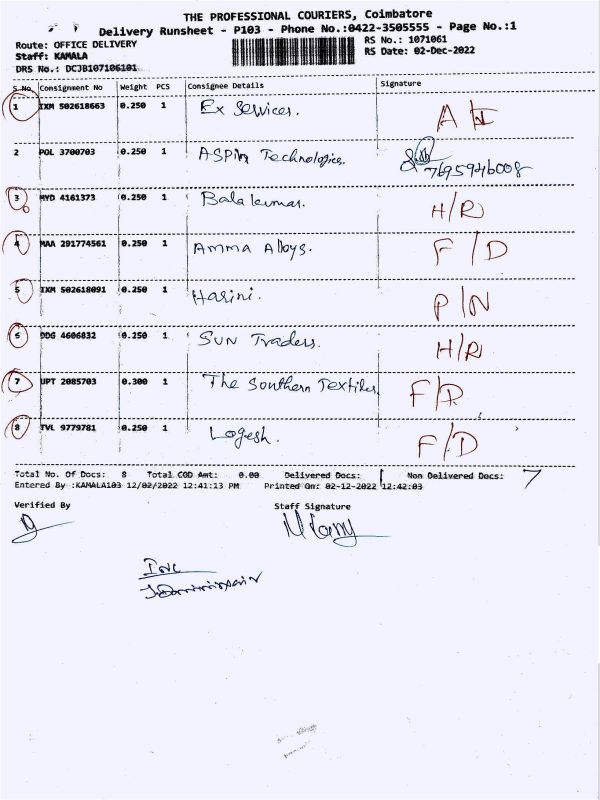 THE PROFESSIONAL COURIERS, Coimbatore
Delivery Runsheet - P103 - Phone No.:0422-3505555 - Page No.:1
Route: OFFICE DELIVERY RS No.: 1071061
Staff: KAMALA RS Date: 02-Dec-2022
DRS No.: DCJB107106101
S No. Consignment No Weight PCS Consignee Details Signature
1 IXM 502618663 0.250 1 Ex Services.
2 POL 3700703 0.250 1 ASPIN Technologies. 7695946008
3 HYD 4161373 0.250 1 Bala kumar. H/R
4 MAA 291774561 0.250 1 Amma Alloys. F/D
5 IXM 502618091 0.250 1 Harini. P/N
6 DDG 4606832 0.250 1 SUN Traders. H/R
7 UPT 2085703 0.300 1 The Southern Textiles
8 TVL 9779781 0.250 1 Logesh. F/D
Total No. Of Docs: 8 Total COD Amt: 0.00 Delivered Docs: 1 Non Delivered Docs: 7
Entered By :KAMALA103 12/02/2022 12:41:13 PM Printed On: 02-12-2022 12:42:03
Verified By Staff Signature